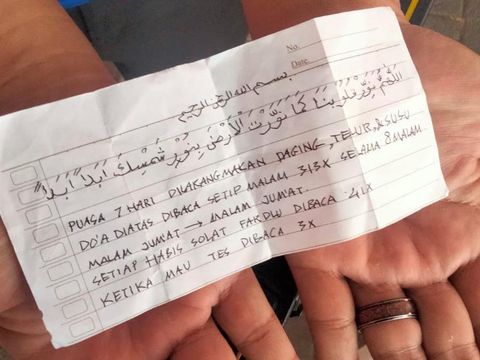 No.
Date
بسم الله الرحمن الرحيم
اَللّٰهُمَّ نَوِّرْ قُلُوْبَنَا كَمَا نَوَّرْتَ الْاَرْضَ بِنُوْرِ شَمْسِكَ اَبَدًا اَبَدًا
PUASA 7 HARI DILARANG MAKAN DAGING, TELUR, & SUSU
DO'A DIATAS DIBACA SETIAP MALAM 313X SELAMA 8 MALAM
MALAM JUM'AT → MALAM JUM'AT.
SETIAP HABIS SOLAT FARDLU DIBACA 41X
KETIKA MAU TES DIBACA 3X